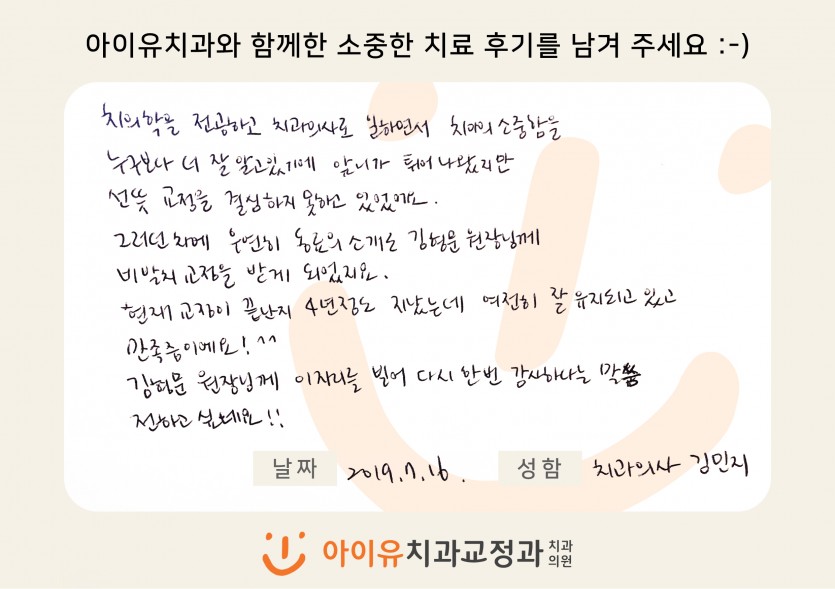 아이유치과와 함께한 소중한 치료 후기를 남겨 주세요 :-)
치의학을 전공하고 치과의사로 일하면서 치아의 소중함을
누구보다 더 잘 알고있기에 앞니가 튀어 나왔지만
선뜻 교정을 결심하지 못하고 있었어요.
그러던 차에 우연히 동료의 소개로 김형문 원장님께
비발치 교정을 받게 되었지요.
현재 교정이 끝난지 4년정도 지났는데 여전히 잘 유지되고 있고
만족중이에요! ^^
김형문 원장님께 이자리를 빌어 다시 한번 감사하다는 말씀
전하고 싶네요!!
날짜 2019.7.16. 성함 치과의사 김민지
아이유치과교정과 치과
의원